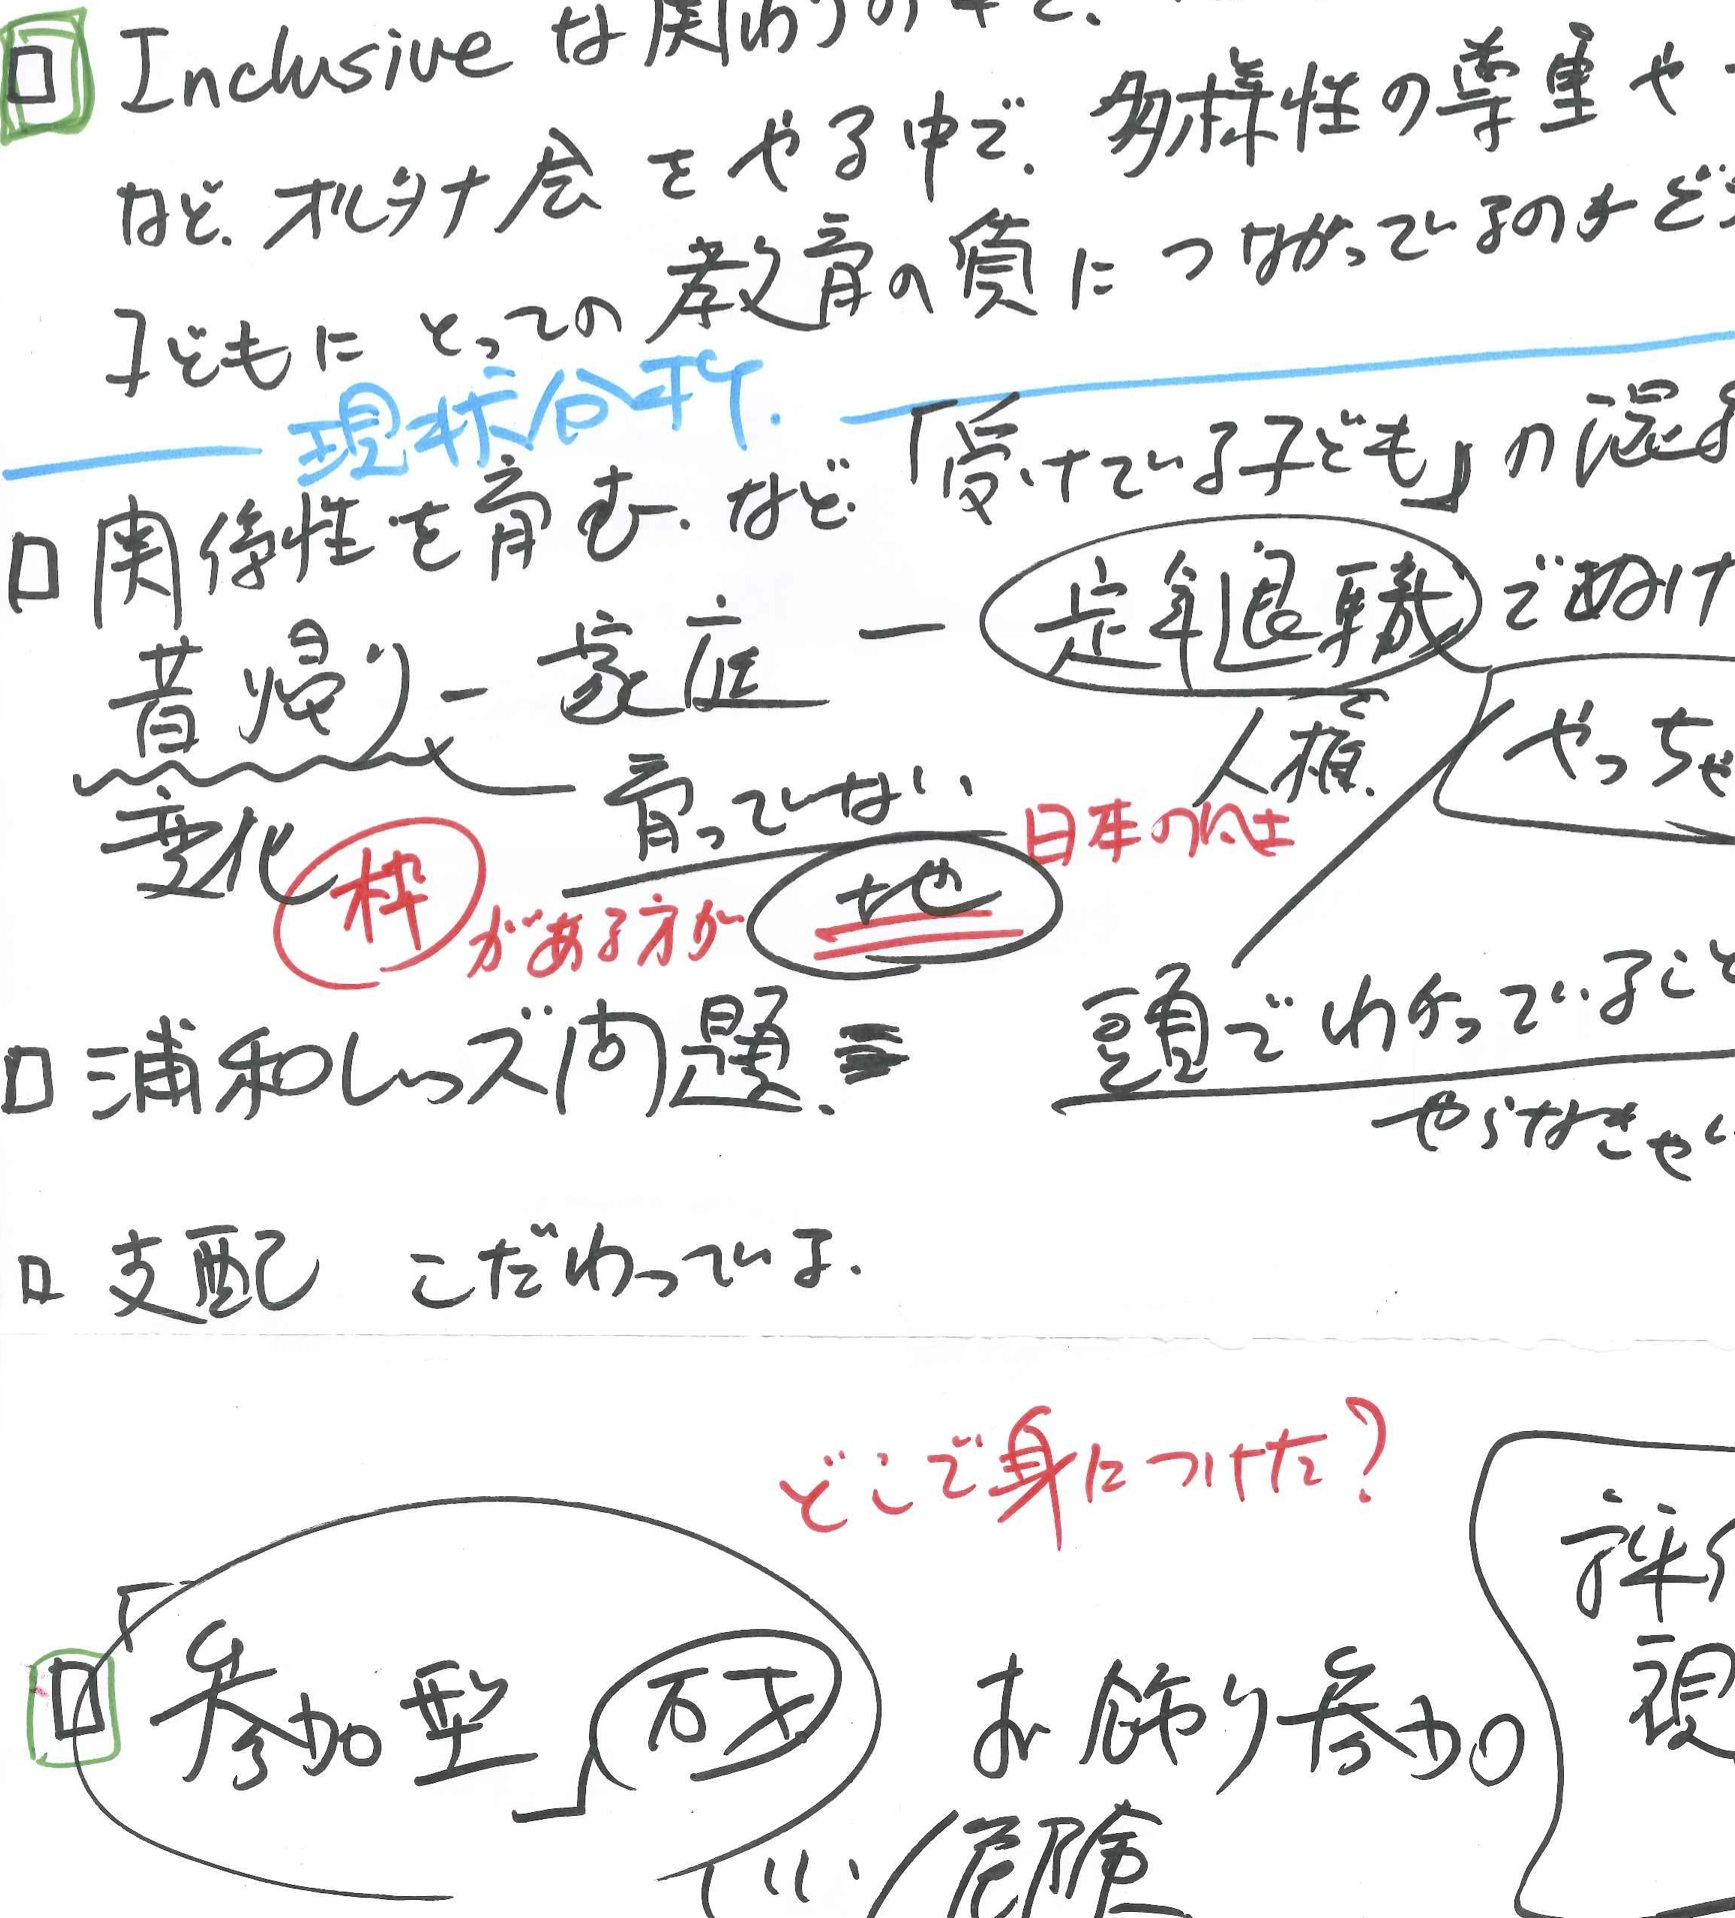 □ Inclusive な関わりの中で、
など、オルタナ会をやる中で、多様性の尊重や
子どもにとっての教育の質につながっているのかど
現状分析.
□ 関係性を育む、など、「受けている子ども」の混
昔帰り - 家庭 - 定年退職でぬけ
変化 育っていない 人権 やっちゃ
枠がある方が 地 日本の
□ 浦和レッズ問題. 頭でわかっていること
やらなきゃ
□ 支配 こだわっている.
どこで身につけた?
□ 「参加型」 お飾り参加 評価
視
危険